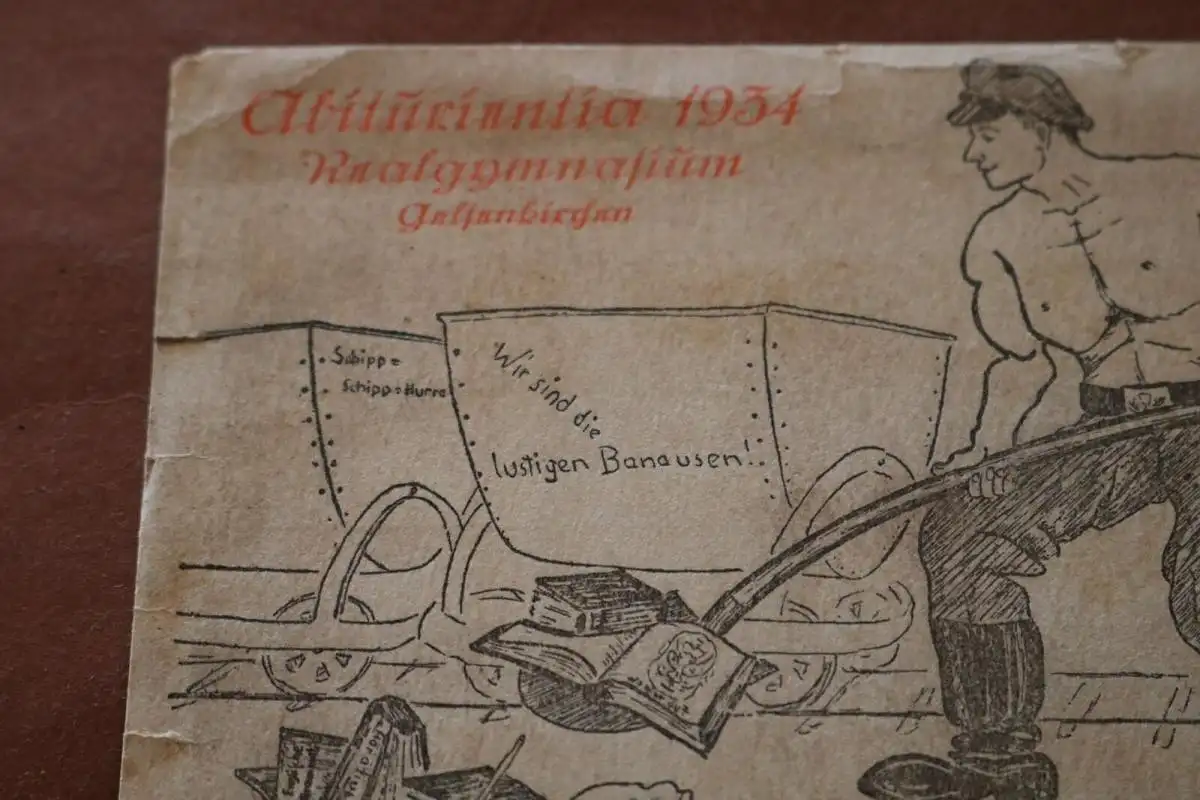 Abiturientia 1934
Realgymnasium
Gelsenkirchen
Schipp=
Schipp=Hurra
Wir sind die
lustigen Banausen!